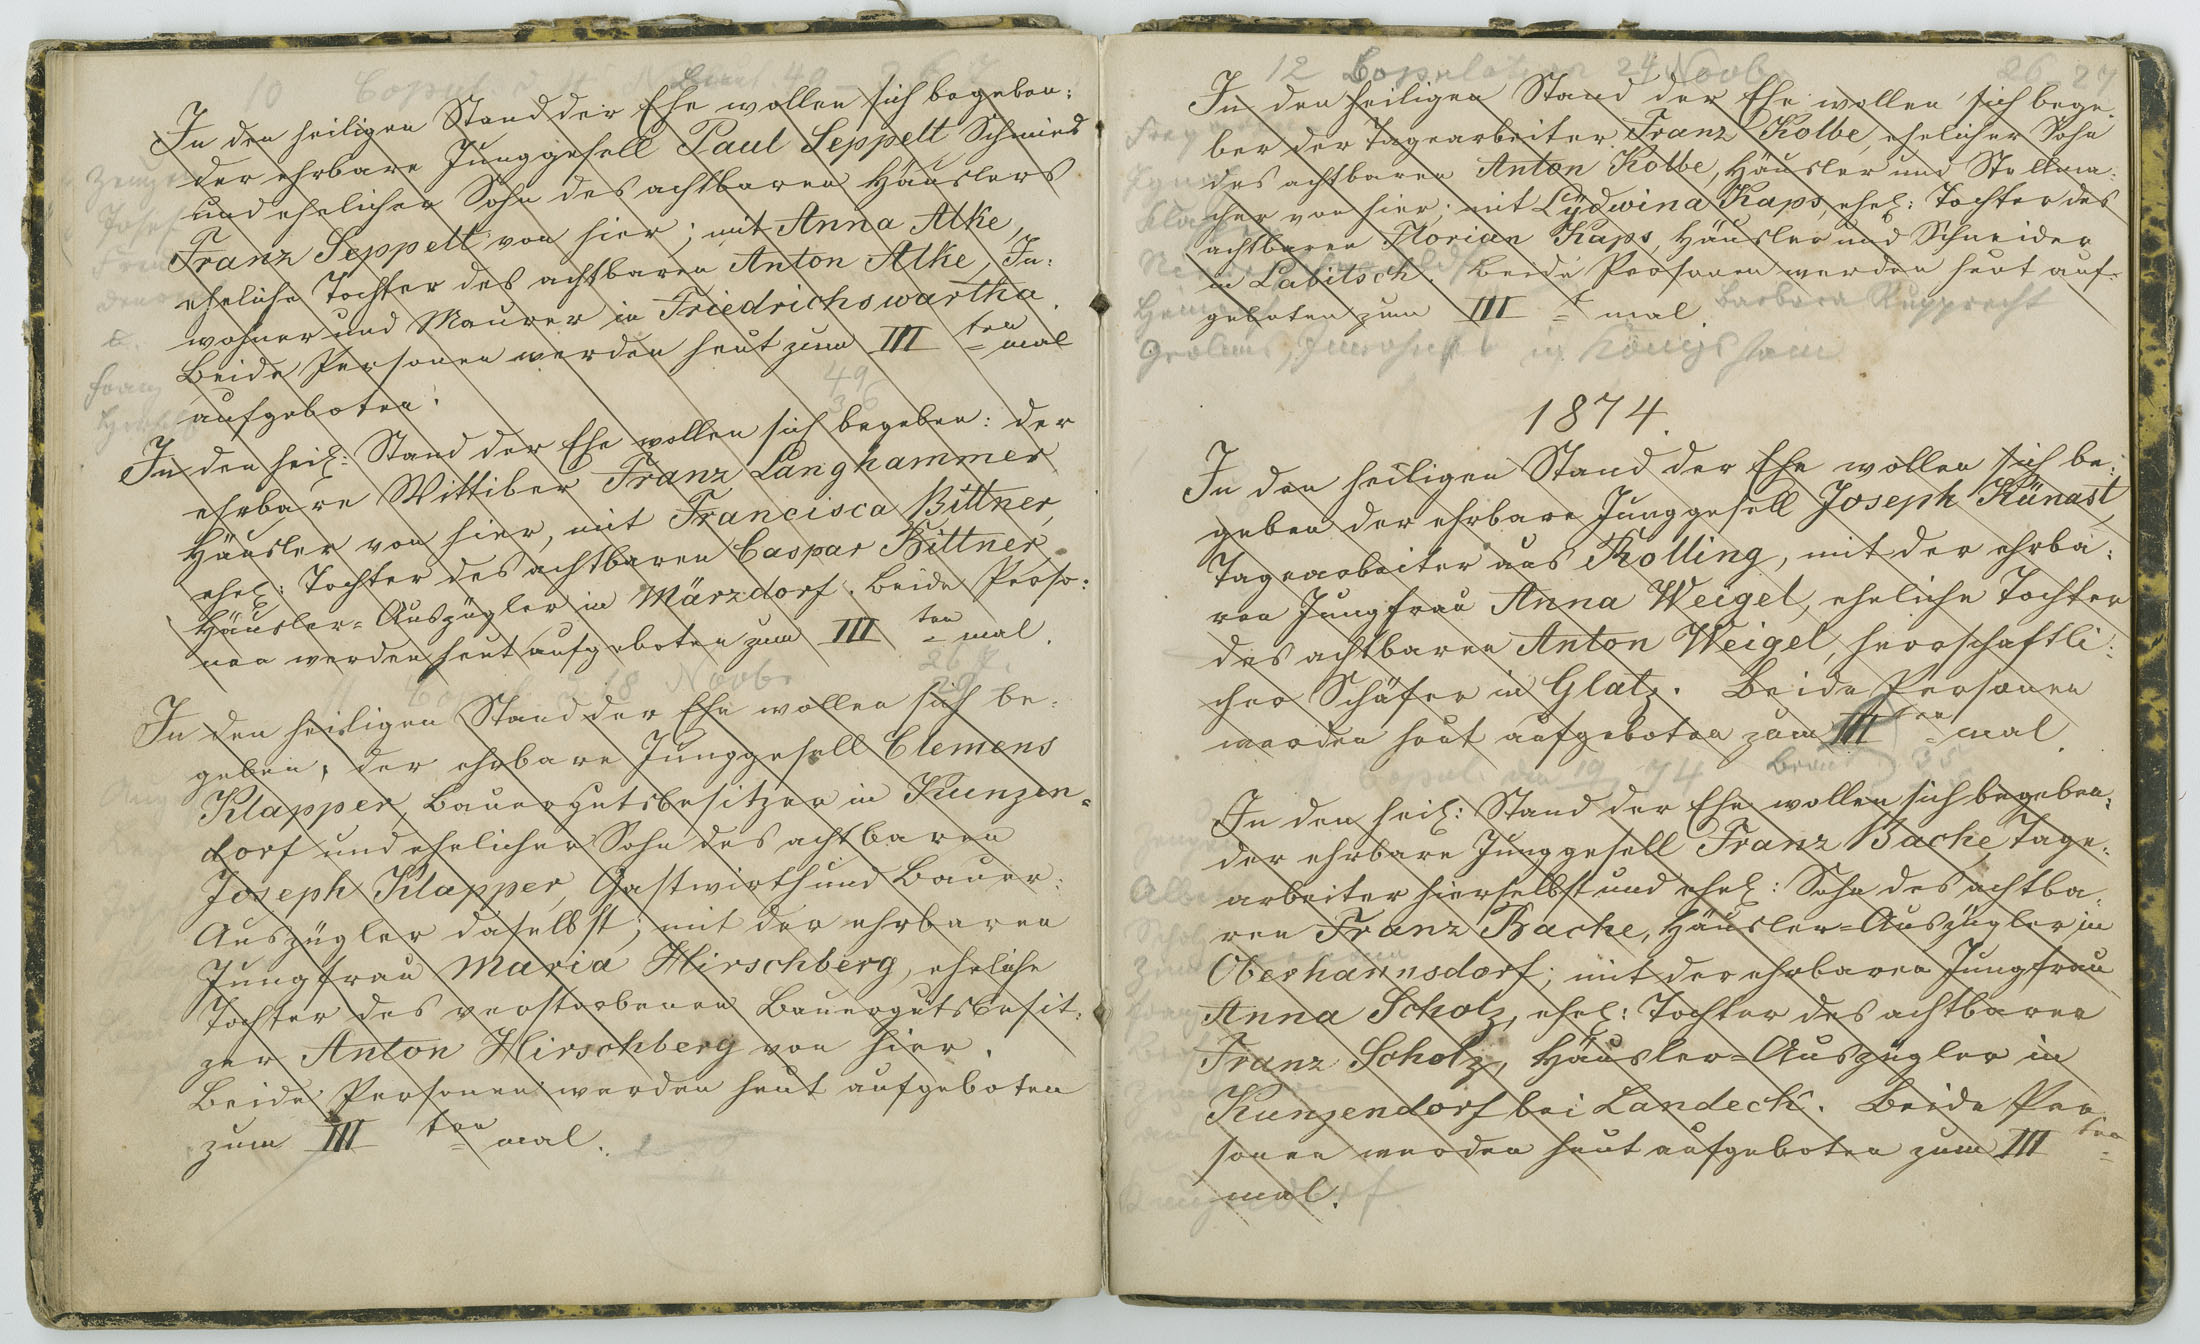 10 Copul.
In den heiligen Stand der Ehe wollen sich begeben:
der ehrbare Junggesell Paul Seppelt Schmied
und ehelicher Sohn des achtbaren Häuslers
Franz Seppelt von hier; mit Anna Atke,
eheliche Tochter des achtbaren Anton Atke, In:
wohner und Maurer in Friedrichswartha.
Beide Personen werden heut zum III ten mal
aufgeboten.
49
36
In den heil: Stand der Ehe wollen sich begeben: der
ehrbare Wittiber Franz Langhammer
Häusler von hier, mit Francisca Bittner,
ehel: Tochter des achtbaren Caspar Bittner,
Häusler-Auszügler in Märzdorf. Beide Perso:
nen werden heut aufgeboten zum III ten mal.
11 Copul. 18 Novb. 26 J.
29
In den heiligen Stand der Ehe wollen sich be:
geben, der ehrbare Junggesell Clemens
Klapper, Bauergutsbesitzer in Kunzen-
dorf und ehelicher Sohn des achtbaren
Joseph Klapper, Gastwirth und Bauer:
Auszügler daselbst; mit der ehrbaren
Jungfrau Maria Hirschberg, eheliche
Tochter des verstorbenen Bauergutsbesit:
zer Anton Hirschberg von hier.
Beide Personen werden heut aufgeboten
zum III ten mal.
Josef
Franz
12 Copulation 24 Novb. 26 27
In den heiligen Stand der Ehe wollen sich bege:
ben der Tagearbeiter Franz Kolbe, ehelicher Sohn
des achtbaren Anton Kolbe, Häusler und Stellma:
cher von hier; mit Lydwina Kaps, ehel: Tochter des
achtbaren Florian Kaps, Häusler und Schneider
in Labitsch. Beide Personen werden heut auf-
geboten zum III t mal
Barbara Rupprecht
in Königshain
1874.
In den heiligen Stand der Ehe wollen sich be:
geben der ehrbare Junggesell Joseph Künast,
Tagearbeiter aus Kolling, mit der ehrba:
ren Jungfrau Anna Weigel, eheliche Tochter
des achtbaren Anton Weigel, herrschaftli:
cher Schäfer in Glatz. Beide Personen
werden heut aufgeboten zum III ten mal.
Copul. den 19 74 35
In den heil: Stand der Ehe wollen sich begeben,
der ehrbare Junggesell Franz Bache, Tage:
arbeiter hierselbst und ehel: Sohn des achtba:
ren Franz Bache, Häusler-Auszügler in
Oberhannsdorf; mit der ehrbaren Jungfrau
Anna Scholz, ehel: Tochter des achtbaren
Franz Scholz, Häusler-Auszügler in
Kunzendorf bei Landeck. Beide Per
sonen werden heut aufgeboten zum III ten
mal.
Scholz